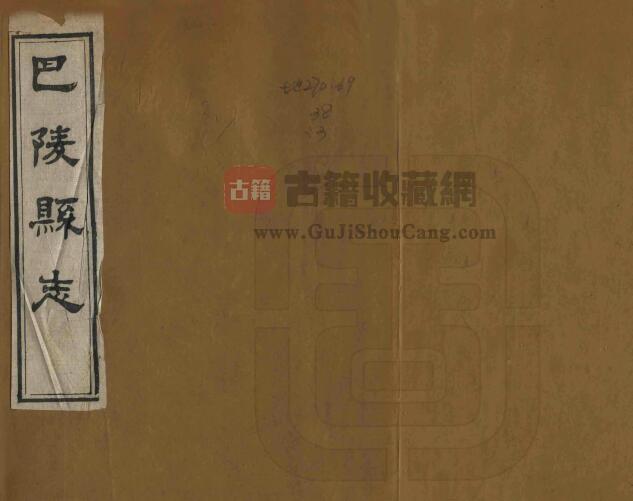 巴陵縣志
地270169
38
13
古籍
古籍收藏網
www.GuJiShouCang.com